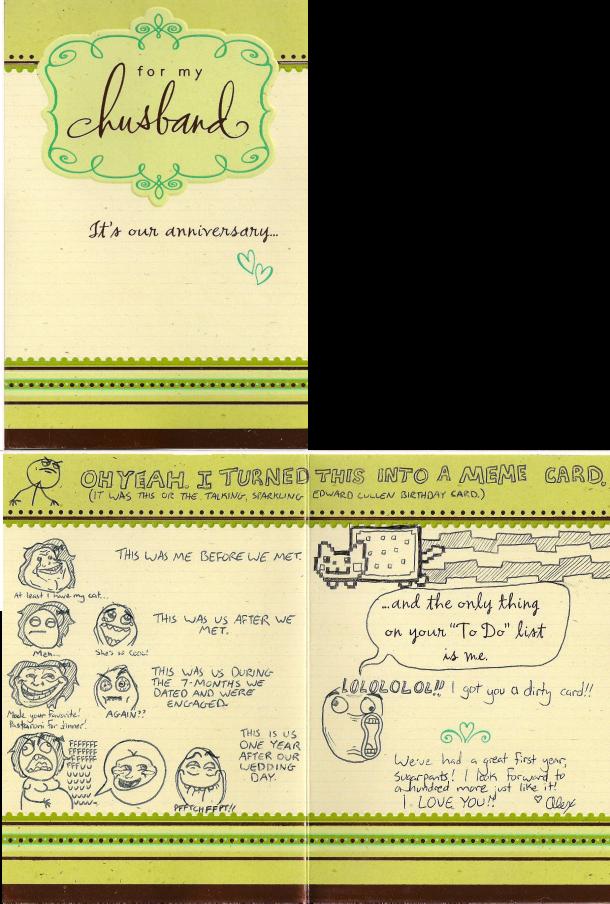 for my
husband
It's our anniversary...
OH YEAH. I TURNED THIS INTO A MEME CARD.
(IT WAS THIS OR THE TALKING, SPARKLING EDWARD CULLEN BIRTHDAY CARD.)
THIS WAS ME BEFORE WE MET.
At least I have my cat...
THIS WAS US AFTER WE
MET.
Meh...
She's so cool!
THIS WAS US DURING
THE 7-MONTHS WE
DATED AND WERE
ENGAGED.
Made your favourite!
Pastaroni for dinner!
AGAIN??
THIS IS US
ONE YEAR
AFTER OUR
WEDDING
DAY.
FFFFFF
FFFFFFF
FFFFFFF
FFFUU
UUUU
UUUU
UUUU
UUUU-
PFFTCHFFPT!!
...and the only thing
on your "To Do" list
is me.
LOLOLOLOL!! I got you a dirty card!!
We've had a great first year,
sugarpants! I look forward to
a hundred more just like it!
I LOVE YOU!!
♡ Alex